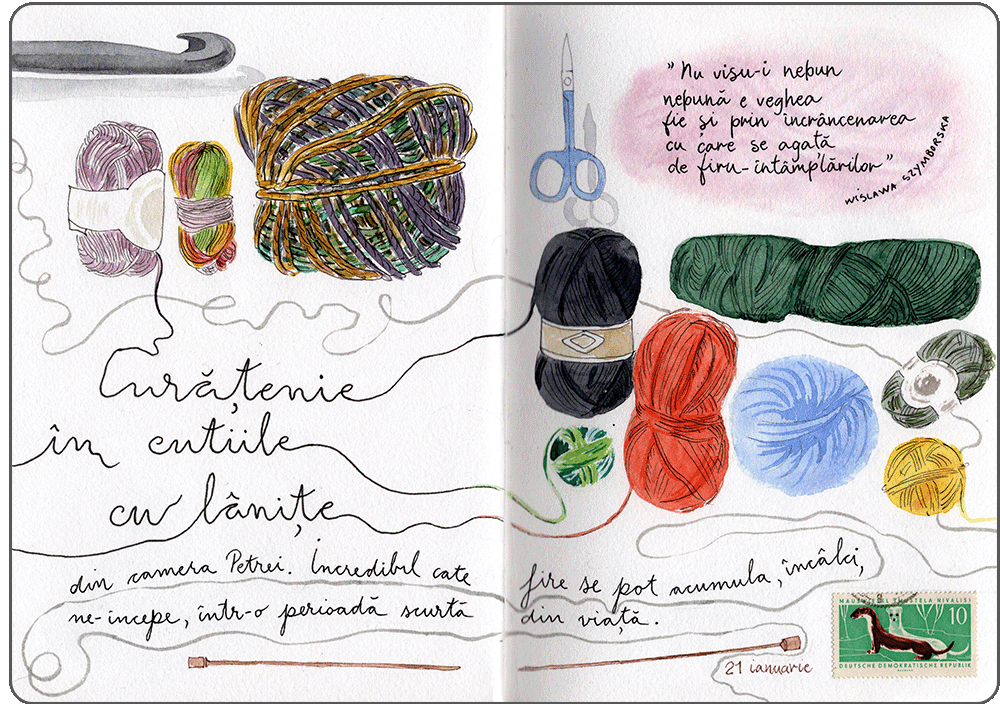 "Nu visu-i nebun
nebună e veghea
fie și prin încrâncenarea
cu care se agață
de firu-întâmplărilor"
WISLAWA SZYMBORSKA
Curățenie
în cutiile
cu lânițe
din camera Petrei. Incredibil cate fire se pot acumula, încâlci,
ne-incepe, într-o perioadă scurtă din viață.
21 ianuarie
MUSTELA NIVALIS
10
DEUTSCHE DEMOKRATISCHE REPUBLIK